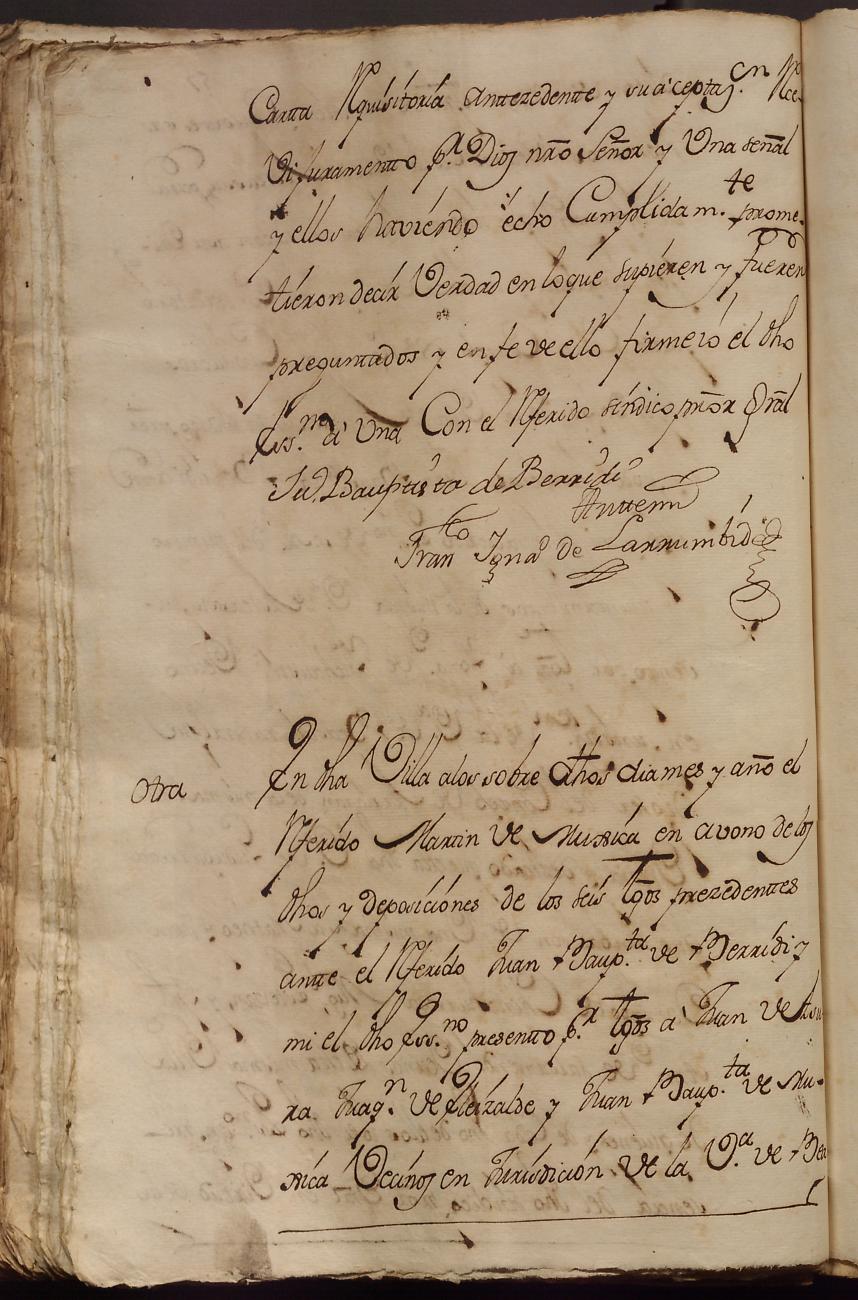 Carta Rquisitoria antezedente y su aceptaz.on Rce-
vi juramento p.r Dios nr̃o Señor y Una señal
y ellos haviendo echo Cumplidam.te prome-
tieron decir Verdad en lo que supieren y fueren
preguntados y en fe de ello firme io el dho
ess.no a Una Con el Rferido sindico pr̃or Gr̃al
Ju.n Bauptista de Berridi
Antemi
Fran.co Igna.o de Larrumbide
Otra
En dha Villa a los sobre dhos dia mes y año el
Rferido Martin de Muxica en avono de los
dhos y deposiciones de los seis tgõs prezedentes
ante el Rferido Juan Baup.ta de Berridi y
mi el dho ess.no presento p.r tgõs a Juan de
ra Juaq.n de Elizalde y Juan Baup.ta de Mu-
xica Vecinos en Jurisdicion de la V.a de